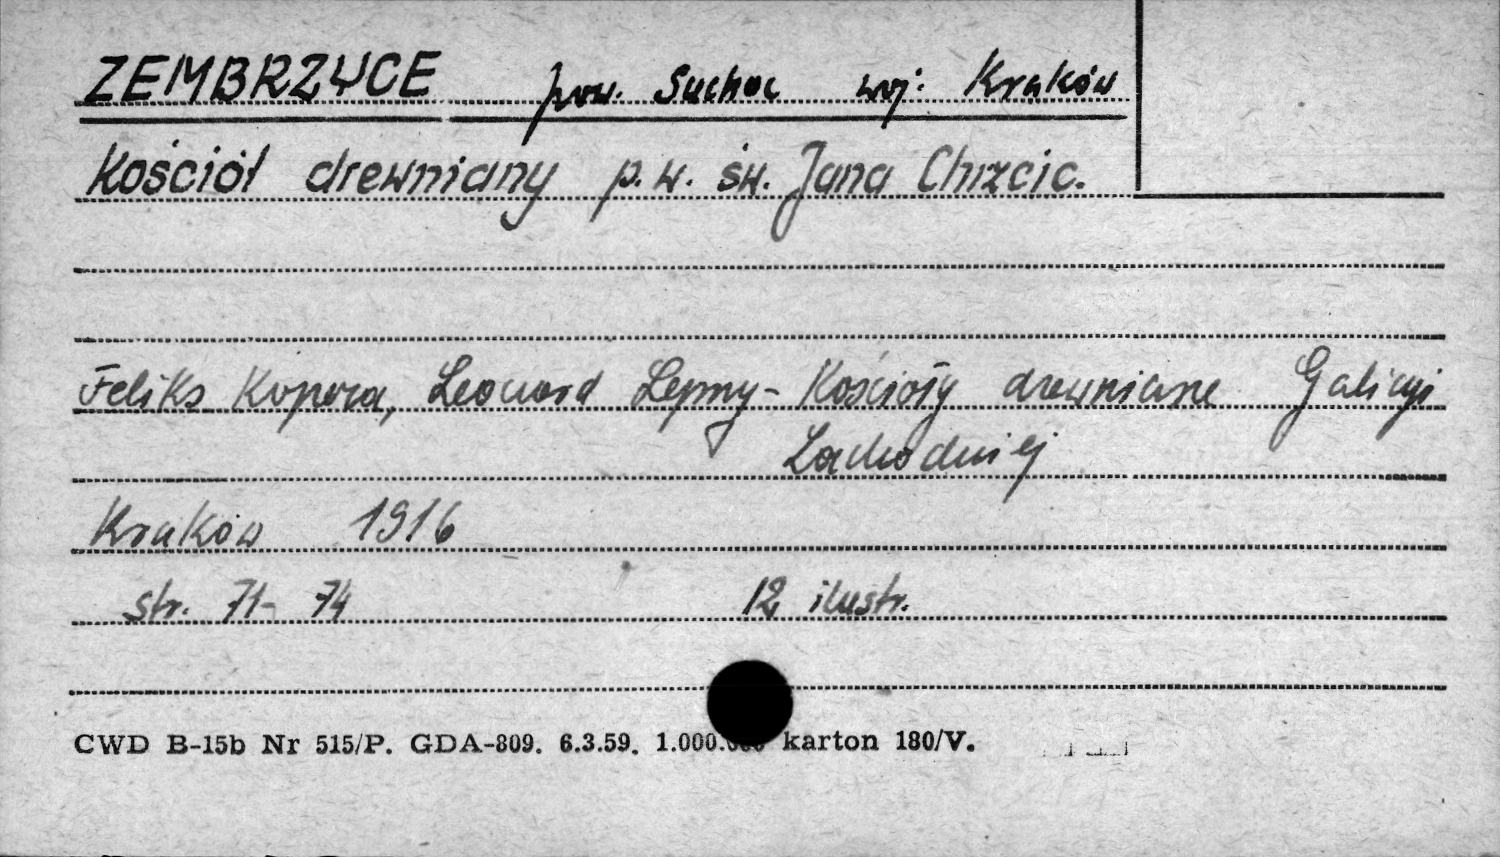 ZEMBRZYCE pow. Sucha woj. Kraków
Kościół drewniany p.w. św. Jana Chrzcic.
Feliks Kopera, Leonard Lepszy - Kościoły drewniane Galicyi
Zachodniej
Kraków 1916
str. 71-74 12 ilustr.
CWD B-15b Nr 515/P. GDA-809. 6.3.59. 1.000.000 karton 180/V.